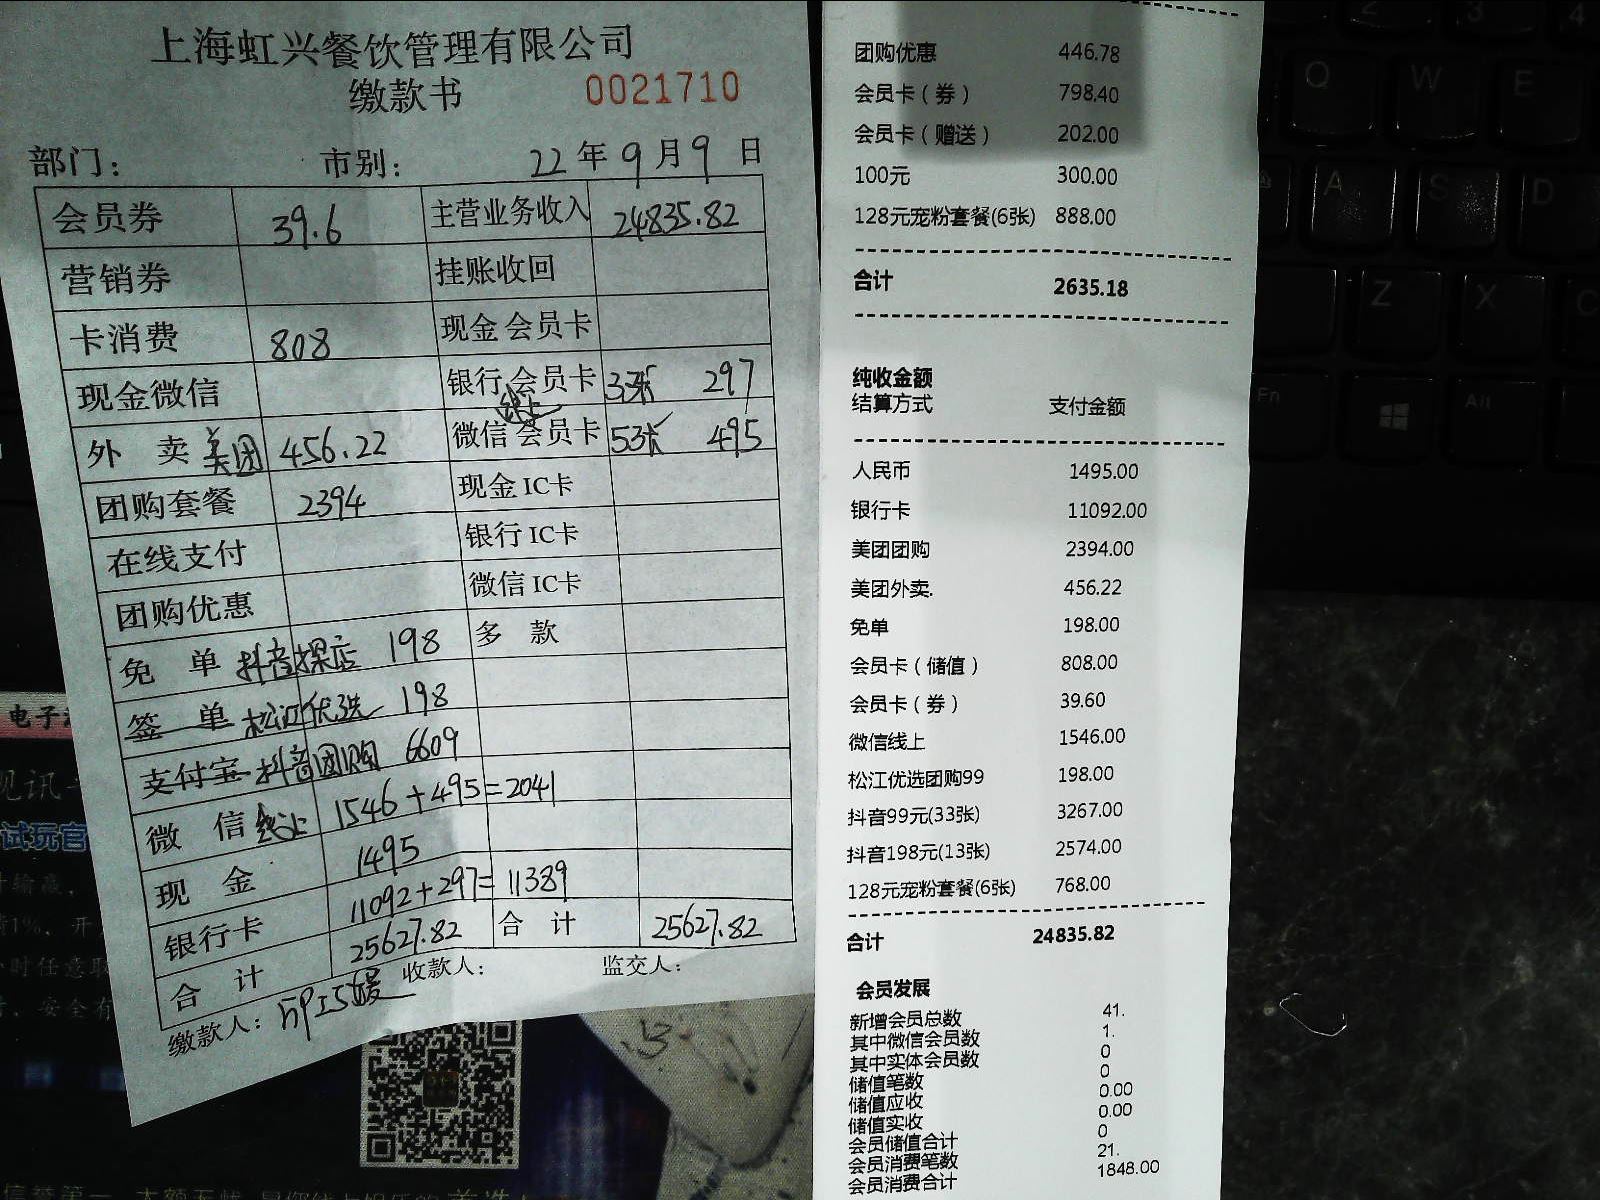 上海虹兴餐饮管理有限公司
缴款书 0021710
部门: 市别: 22 年 9 月 9 日
会员券 39.6 主营业务收入 24835.82
营销券 挂账收回
卡消费 808 现金会员卡
现金微信 银行会员卡 3张 297
外 卖 美团 456.22 微信 线上 会员卡 5张 495
团购套餐 2394 现金IC卡
在线支付 银行IC卡
团购优惠 微信IC卡
免 单 抖音探店 198 多 款
签 单 松江优选 198
支付宝 抖音团购 6609
微 信 线上 1546+495=2041
现 金 1495
银行卡 11092+297=11389
合 计 25627.82 合 计 25627.82
缴款人: 收款人: 监交人:
团购优惠 446.78
会员卡(券) 798.40
会员卡(赠送) 202.00
100元 300.00
128元宠粉套餐(6张) 888.00
合计 2635.18
纯收金额
结算方式 支付金额
人民币 1495.00
银行卡 11092.00
美团团购 2394.00
美团外卖. 456.22
免单 198.00
会员卡(储值) 808.00
会员卡(券) 39.60
微信线上 1546.00
松江优选团购99 198.00
抖音99元(33张) 3267.00
抖音198元(13张) 2574.00
128元宠粉套餐(6张) 768.00
合计 24835.82
会员发展
新增会员总数 41.
其中微信会员数 1.
其中实体会员数 0
储值笔数 0
储值应收 0.00
储值实收 0.00
会员储值合计 0
会员消费笔数 21.
会员消费合计 1848.00
Q W E
A S D
Z X C
Fn Alt
电子
视讯
试玩官